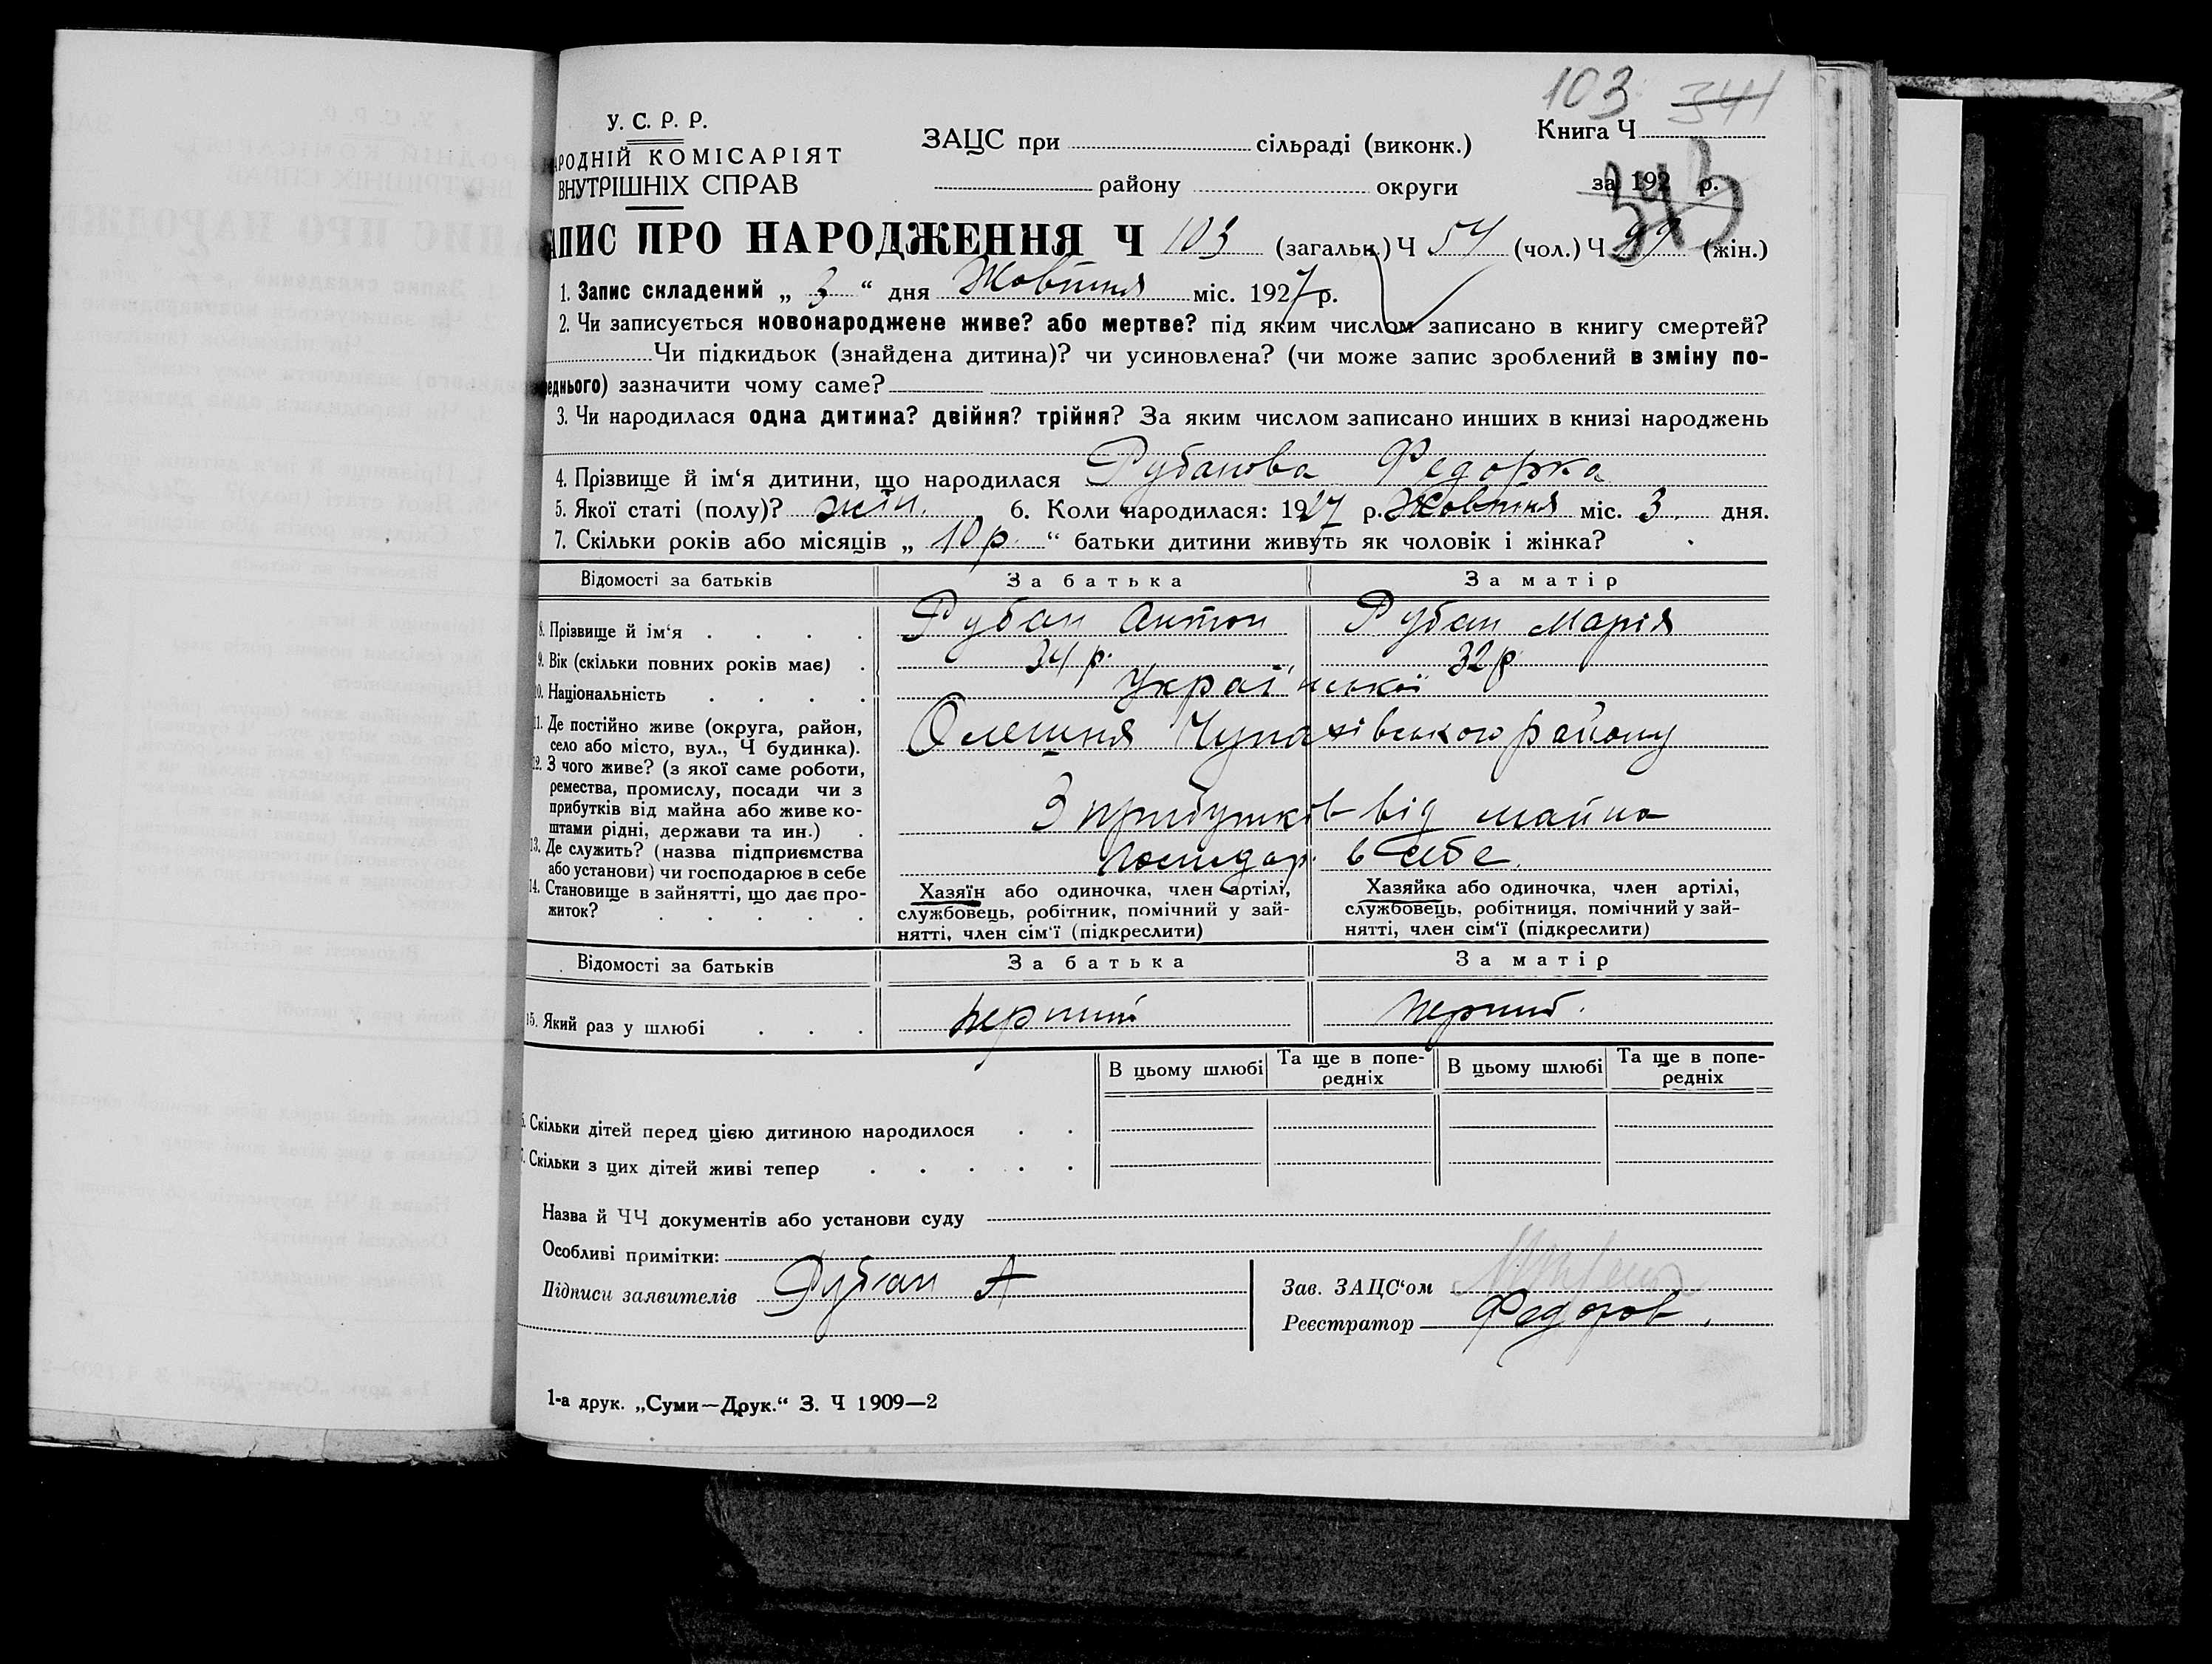 103 344
У. С. Р. Р.
АРОДНІЙ КОМІСАРІЯТ
ВНУТРІШНІХ СПРАВ
ЗАЦС при сільраді (виконк.)
району округи
Книга Ч
за 192 р.
АПИС ПРО НАРОДЖЕННЯ Ч 103 (загальн.) Ч 54 (чол.) Ч (жін.)
1. Запис складений „ 3 “ дня Жовтня міс. 1927 р.
2. Чи записується новонароджене живе? або мертве? під яким числом записано в книгу смертей?
Чи підкидьок (знайдена дитина)? чи усиновлена? (чи може запис зроблений в зміну по-
еднього) зазначити чому саме?
3. Чи народилася одна дитина? двійня? трійня? За яким числом записано инших в книзі народжень
4. Прізвище й ім‘я дитини, що народилася Рубанова Федорка
5. Якої статі (полу)? жін. 6. Коли народилася: 1927 р. Жовтня міс. 3. дня.
7. Скільки років або місяців „ 10 р. “ батьки дитини живуть як чоловік і жінка?
Відомості за батьків За батька За матір
8. Прізвище й ім‘я . . . . Рубан Антон Рубан Марія
9. Вік (скільки повних років має) . 34 р. 32 р
10. Національність . . . . Української
11. Де постійно живе (округа, район,
село або місто, вул., Ч будинка). Олешня Чупахівського району
12. З чого живе? (з якої саме роботи,
ремества, промислу, посади чи з
прибутків від майна або живе ко-
штами рідні, держави та ин.) . З прибутків від майна
13. Де служить? (назва підприємства
або установи) чи господарює в себе господар. в себе.
14. Становище в зайнятті, що дає про-
житок? . . . . .
Хазяїн або одиночка, член артілі,
службовець, робітник, помічний у зай-
нятті, член сім‘ї (підкреслити)
Хазяйка або одиночка, член артілі,
службовець, робітниця, помічний у зай-
нятті, член сім‘ї (підкреслити)
Відомості за батьків За батька За матір
15. Який раз у шлюбі . . . перший перший.
В цьому шлюбі Та ще в попе-
редніх В цьому шлюбі Та ще в попе-
редніх
Скільки дітей перед цією дитиною народилося . .
Скільки з цих дітей живі тепер . . . . .
Назва й ЧЧ документів або установи суду
Особливі примітки:
Підписи заявителів Рубан А
Зав. ЗАЦС‘ом
Реєстратор Федоров.
1-а друк. „Суми—Друк.“ З. Ч 1909—2